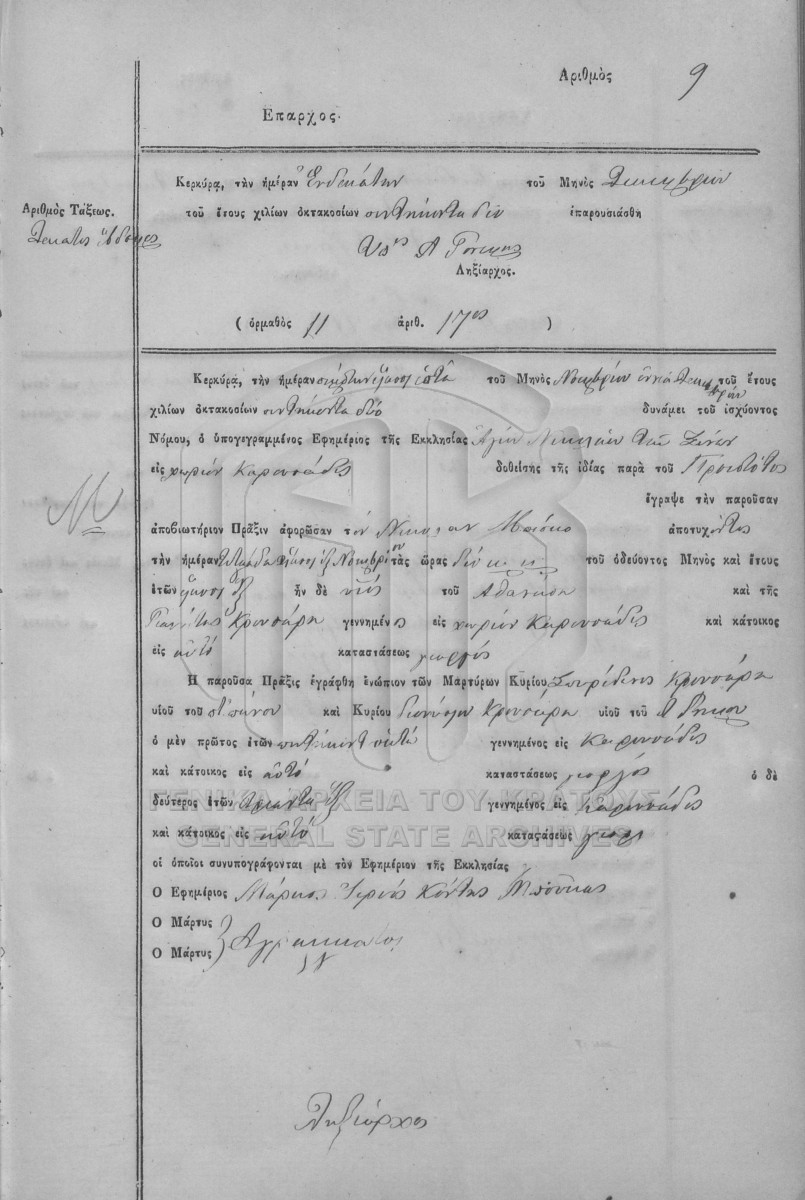 Αριθμὸς 9
Επαρχος.
Κερκύρα, τὴν ἡμέραν Ἑνδεκάτην τοῦ Μηνὸς Δεκεμβρίου
Αριθμὸς Τάξεως.
τοῦ ἔτους χιλίων ὀκτακοσίων πεντήκοντα δύο ἐπαρουσιάσθη
Δέκατος ἕβδομος
Ληξίαρχος.
( ὁρμαθὸς 11 ἀριθ. 17ος )
Κερκύρα, τὴν ἡμέραν εἴκοσι ἑπτὰ τοῦ Μηνὸς Νοεμβρίου τοῦ ἔτους
χιλίων ὀκτακοσίων πεντήκοντα δύο δυνάμει τοῦ ἰσχύοντος
Νόμου, ὁ ὑπογεγραμμένος Εφημέριος τῆς Εκκλησίας Ἁγίου Νικολάου τῶν Ξένων
εἰς χωρίον Καρουσάδες δοθείσης τῆς ἰδίας παρὰ τοῦ Προεστῶτος
ἔγραψε τὴν παροῦσαν
ἀποβιωτήριον Πρᾶξιν ἀφορῶσαν τὸν Νικόλαον ἀποτυχόντος
τὴν ἡμέραν Νοεμβρίου τὰς ὥρας δύο τοῦ ὁδεύοντος Μηνὸς καὶ ἔτους
ἐτῶν εἴκοσι ἕξ ἦν δὲ υἱὸς τοῦ Αθανάση καὶ τῆς
Κρουσάρη γεννημένος εἰς χωρίον Καρουσάδες καὶ κάτοικος
εἰς αὐτό καταστάσεως γεωργός
Η παροῦσα Πρᾶξις ἐγράφθη ἐνώπιον τῶν Μαρτύρων Κυρίου Σπυρίδωνος Κρουσάρη
υἱοῦ τοῦ Στεφάνου καὶ Κυρίου Διονύσιου Κρουσάρη υἱοῦ τοῦ
ὁ μὲν πρῶτος ἐτῶν πεντήκοντα ὀκτώ γεννημένος εἰς Καρουσάδες
καὶ κάτοικος εἰς αὐτό καταστάσεως γεωργός ὁ δὲ
δεύτερος ἐτῶν τριάντα ἕξ γεννημένος εἰς Καρουσάδες
καὶ κάτοικος εἰς αὐτό καταστάσεως γεωργ
οἱ ὁποῖοι συνυπογράφονται μὲ τὸν Εφημέριον τῆς Εκκλησίας
Ο Εφημέριος Μάρκος Ἱερεύς Κόντης
Ο Μάρτυς
Ο Μάρτυς Αγράμματος
Ληξίαρχος
ΓΕΝΙΚΑ ΑΡΧΕΙΑ ΤΟΥ ΚΡΑΤΟΥΣ
GENERAL STATE ARCHIVES